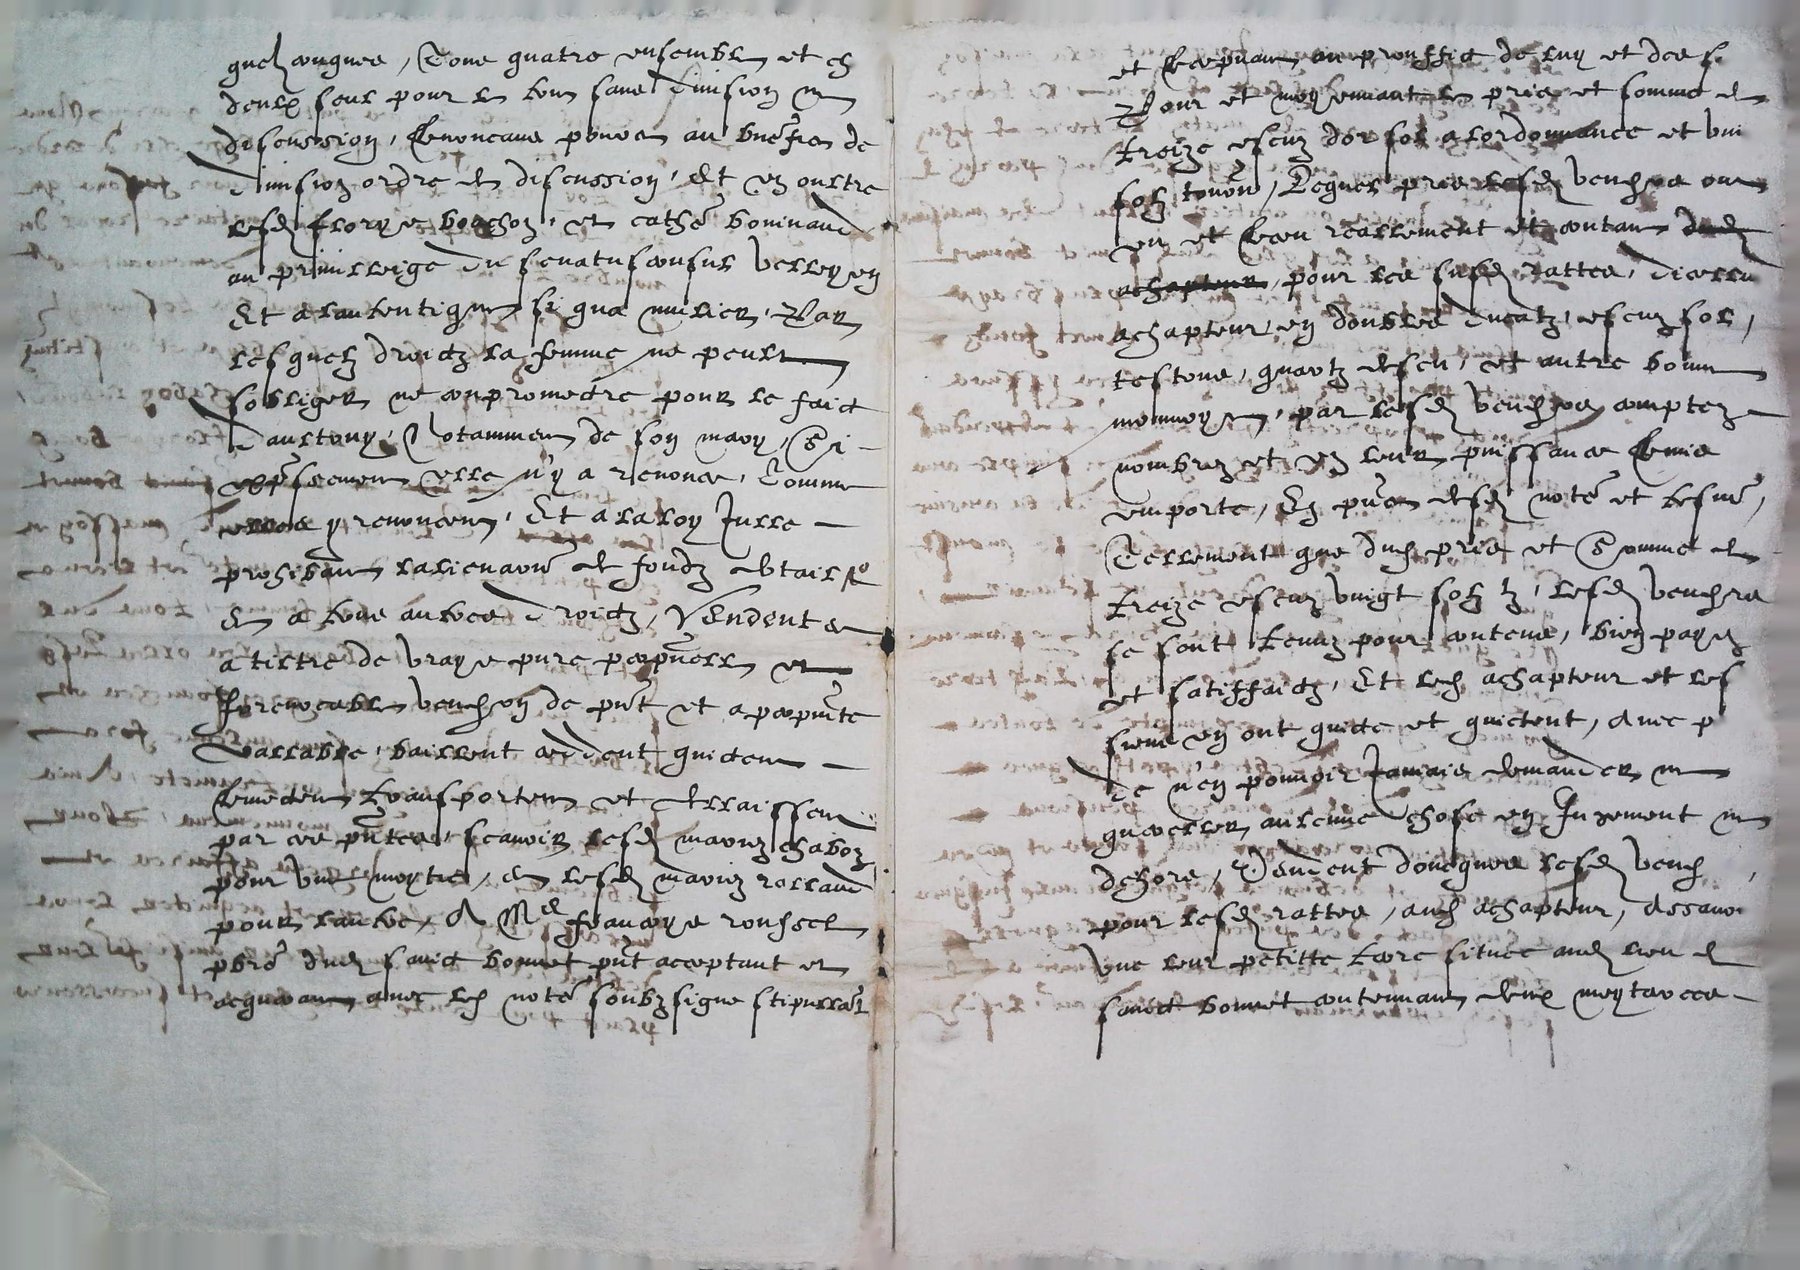 quelzconques, Tous quatre ensemble et ch
deulx seul pour le tout sans division ne
discussion, Renoncans pource au bnéfice de
division ordre et discussion, Et en oultre
lesd florye bochon, et cathe bonnaud
au privilleige du senatusconsul velleyen
Et a lautentique si qua mulier, Par
lesquelz droictz la femme ne peult
sobliger ne compromectre pour le faict
daultruy, Notamment de son mary, Si
expssement elle n'y a renonce, Comme
elles y renoncent, Et a la loy Jullie
prohibant lalienaon de fondz dotail
Et a tous autres droictz, Vendent et
a tiltre de vraye pure perpuelle et
Irrevocable vendition de pnt et a perpuite
vallable, baillent ceddent quictent
Remectent transportent et dellaissent
par ces pntes, scavoir lesd mariez chabon
pour une moytie, et lesd mariez rolland
pour lautre, A Me francoys roussel
pbre dud sainct bonnet pnt acceptant et
acquerant avec led note soubzsigne stipullant
et Recepvant au prouffict de luy et des s
Pour et moyennant le pris et somme de
treize escuz dor sol a lordonnance et vin
solz tourn, Lequel pris lesd vendeurs ont
eu et Receu reallement et contant dud
achapteur, pour les susd rattes, dicelluy
achapteur, en doubles ducatz, escuz sol,
testons, quartz descu, et autre bonne
monnoye, par lesd vendeurs comptez
nombrez et en leur puissance Remis
emporte, En pnce desd note et tesmé,
Tellement que dud pris et Somme de
treize escuz vingt solz tz, lesd vendeurs
se sont tenuz pour contens, bien payez
et satiffaictz, Et led achapteur et les
siens en ont quitte et quictent, avec p
de n'en pouvoir Jamais demander ne
quereller aulcune chose en Jugement ne
dehors, Vendent doncques lesd vend
pour lesd rattes, aud achapteur, Assavoi
Une leur petitte terre situee aud lieu de
sainct bonnet contenant deux meyterees